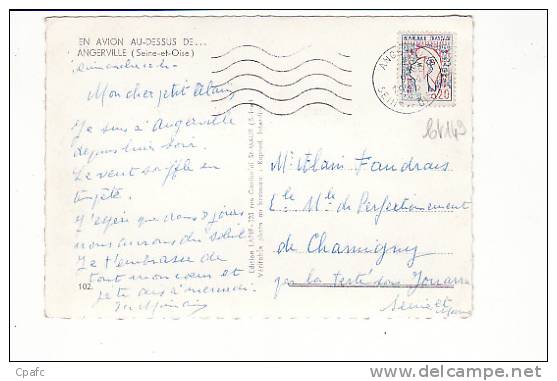 EN AVION AU-DESSUS DE...
ANGERVILLE (Seine-et-Oise)
Mon cher petit Alain
Je suis à Angerville
depuis hier soir.
Le vent souffle en
tempête.
J'espère que dans 8 jours
nous aurons du soleil
Je t'embrasse de
tout mon cœur et
à
102.
Edition LAPIE
Véritable photo au bromure - Reprod. Interdite
REPUBLIQUE FRANÇAISE
0,20
ANG
6k149
Mr Alain Faudrais
Ele Mle de Perfectionnement
de Chamigny
par la Ferté sous Jouarre
Seine et Marne
Cpafc
http://www.delcampe.net